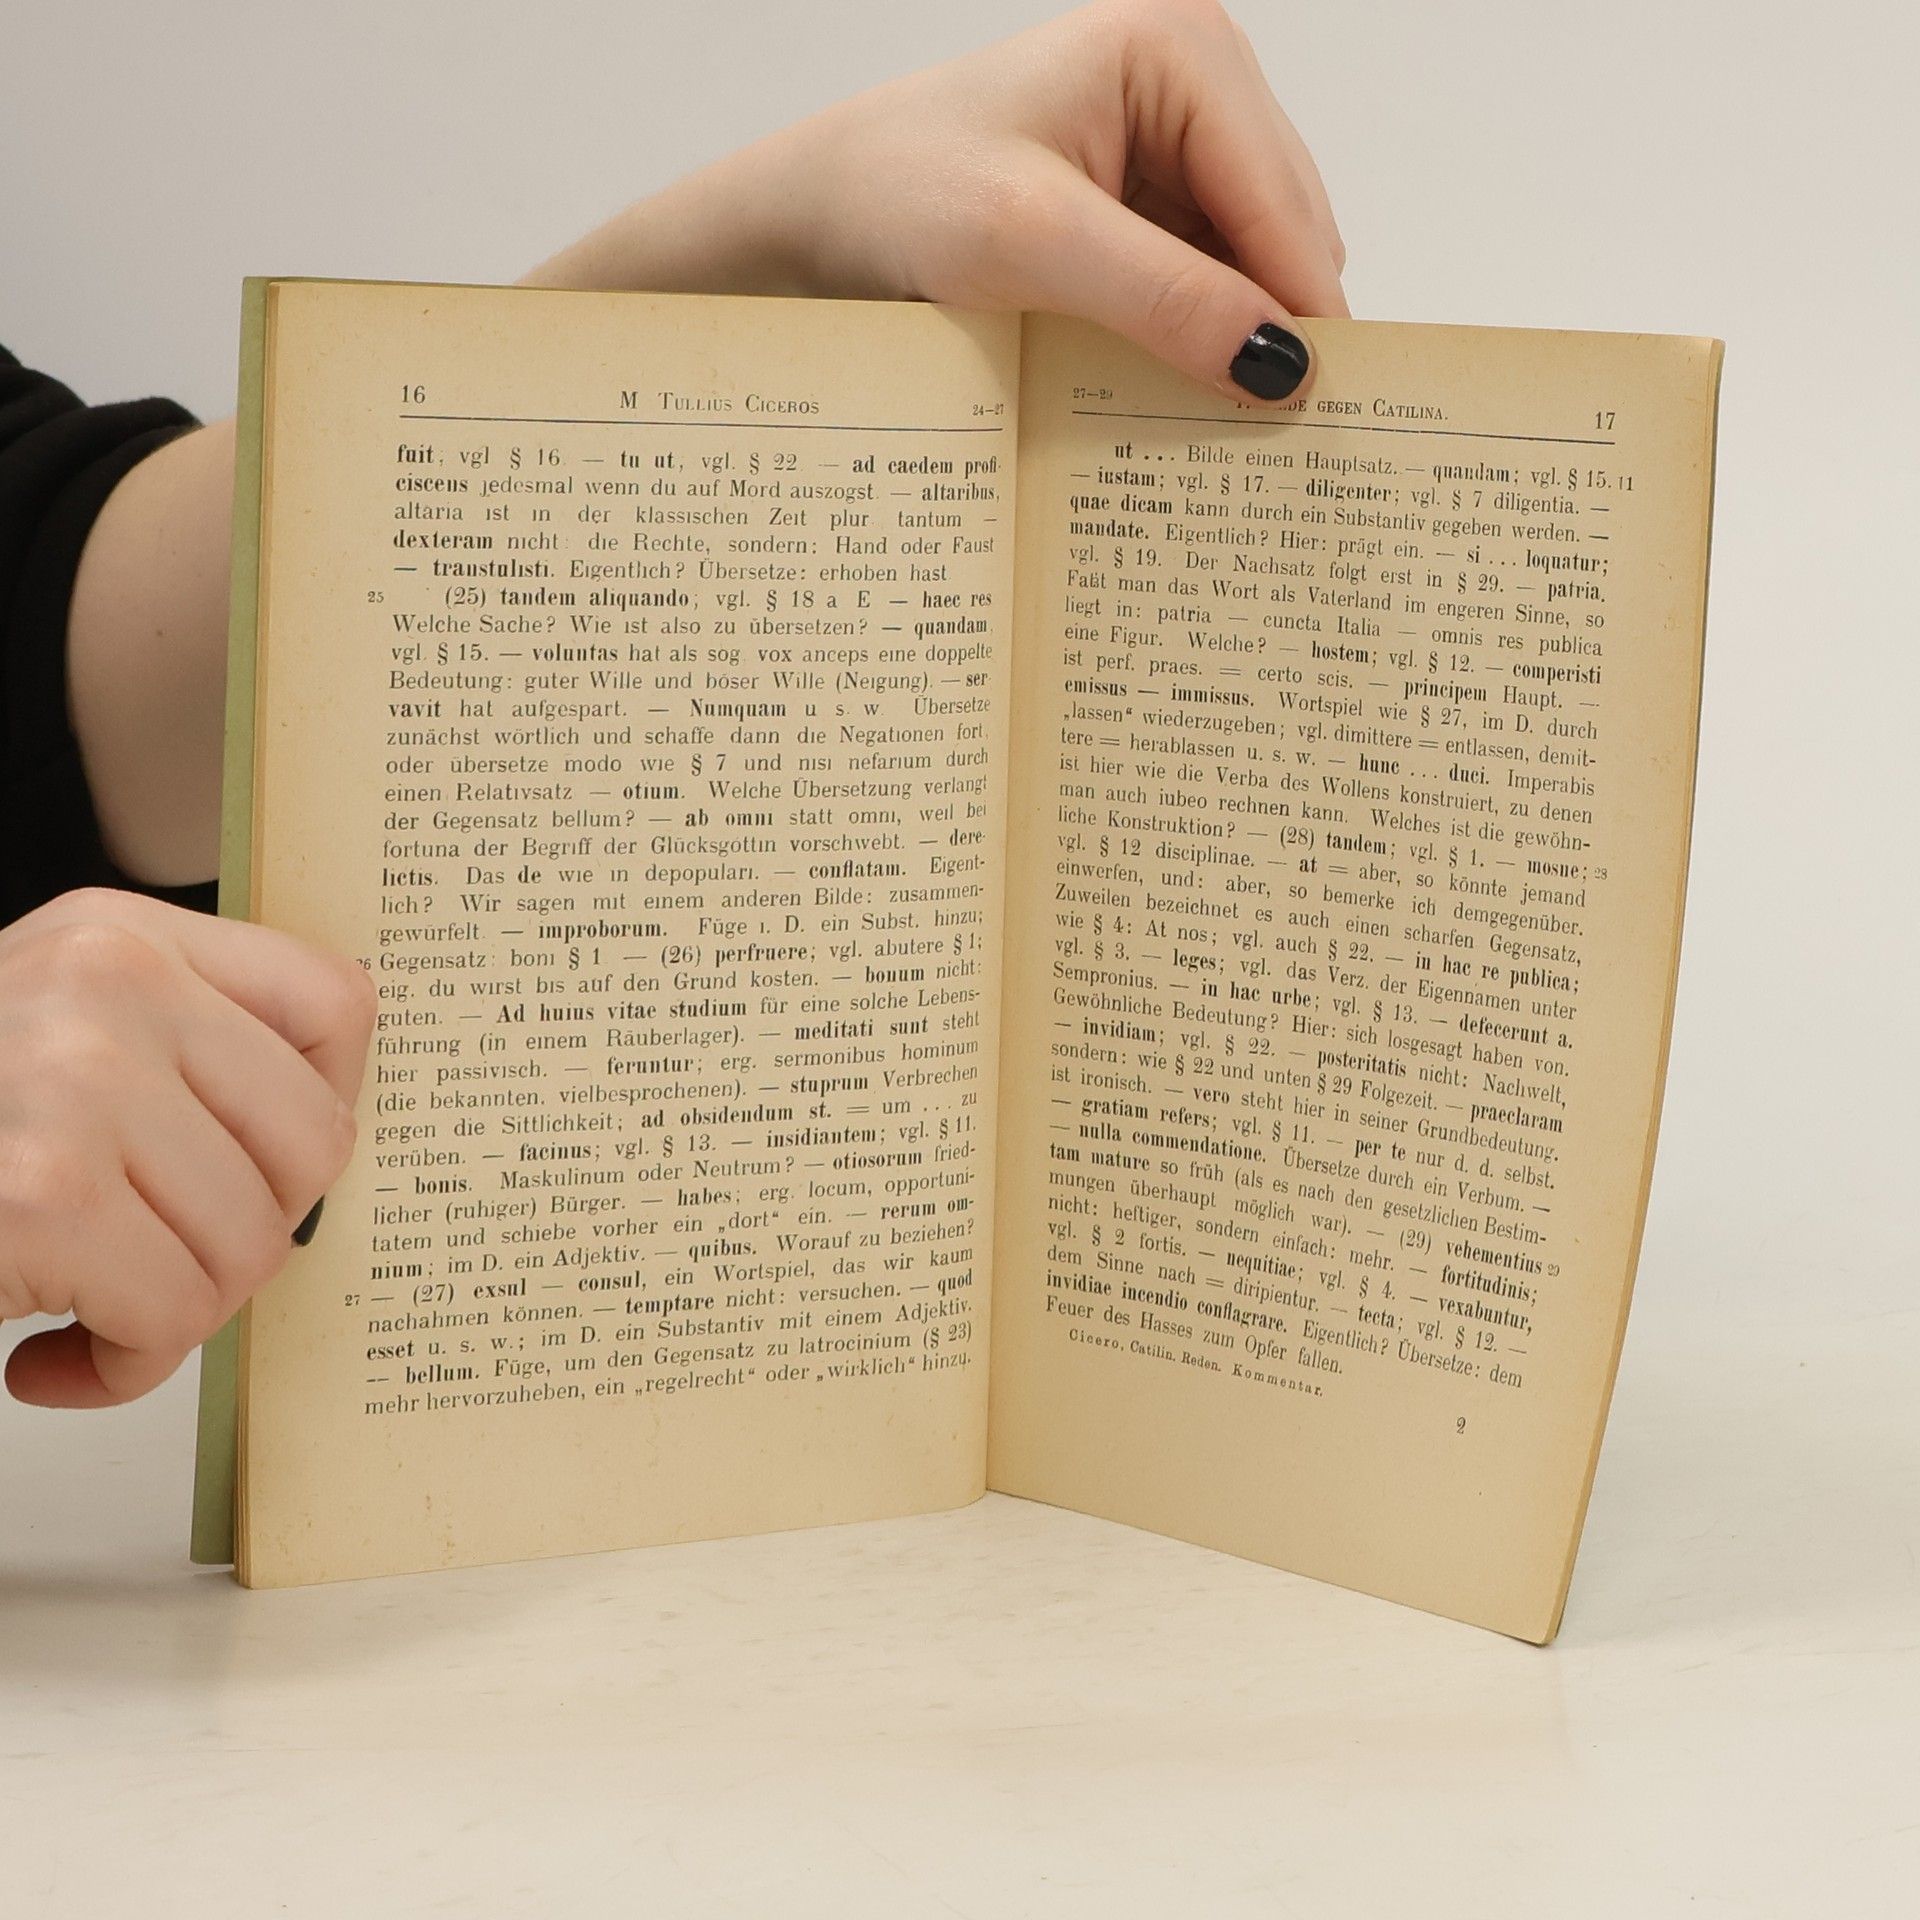 16
M TULLIUS CICEROS
24–27
fuit; vgl § 16. — tu ut; vgl. § 22 — ad caedem profi-
ciscens jedesmal wenn du auf Mord auszogst. — altaribus,
altaria ist in der klassischen Zeit plur. tantum —
dexteram nicht: die Rechte, sondern: Hand oder Faust
— transtulisti. Eigentlich? Übersetze: erhoben hast
25 (25) tandem aliquando; vgl. § 18 a E — haec res
Welche Sache? Wie ist also zu übersetzen? — quandam,
vgl. § 15. — voluntas hat als sog. vox anceps eine doppelte
Bedeutung: guter Wille und böser Wille (Neigung). — ser-
vavit hat aufgespart. — Numquam u s. w. Übersetze
zunächst wörtlich und schaffe dann die Negationen fort,
oder übersetze modo wie § 7 und nisi nefarium durch
einen Relativsatz — otium. Welche Übersetzung verlangt
der Gegensatz bellum? — ab omni statt omni, weil bei
fortuna der Begriff der Glücksgöttin vorschwebt. — dere-
lictis. Das de wie in depopulari. — conflatam. Eigent-
lich? Wir sagen mit einem anderen Bilde: zusammen-
gewürfelt. — improborum. Füge i. D. ein Subst. hinzu;
26 Gegensatz: boni § 1 — (26) perfruere; vgl. abutere § 1;
eig. du wirst bis auf den Grund kosten. — bonum nicht:
guten. — Ad huius vitae studium für eine solche Lebens-
führung (in einem Räuberlager). — meditati sunt steht
hier passivisch. — feruntur; erg. sermonibus hominum
(die bekannten, vielbesprochenen). — stuprum Verbrechen
gegen die Sittlichkeit; ad obsidendum st. = um . . . zu
verüben. — facinus; vgl. § 13. — insidiantem; vgl. § 11.
— bonis. Maskulinum oder Neutrum? — otiosorum fried-
licher (ruhiger) Bürger. — habes; erg. locum, opportuni-
tatem und schiebe vorher ein „dort“ ein. — rerum om-
nium; im D. ein Adjektiv. — quibus. Worauf zu beziehen?
27 — (27) exsul — consul, ein Wortspiel, das wir kaum
nachahmen können. — temptare nicht: versuchen. — quod
esset u. s. w.; im D. ein Substantiv mit einem Adjektiv.
— bellum. Füge, um den Gegensatz zu latrocinium (§ 23)
mehr hervorzuheben, ein „regelrecht“ oder „wirklich“ hinzu.
27–29
DE GEGEN CATILINA.
17
ut ... Bilde einen Hauptsatz. — quandam; vgl. § 15. 11
— iustam; vgl. § 17. — diligenter; vgl. § 7 diligentia. —
quae dicam kann durch ein Substantiv gegeben werden. —
mandate. Eigentlich? Hier: prägt ein. — si ... loquatur;
vgl. § 19. Der Nachsatz folgt erst in § 29. — patria.
Faßt man das Wort als Vaterland im engeren Sinne, so
liegt in: patria — cuncta Italia — omnis res publica
eine Figur. Welche? — hostem; vgl. § 12. — comperisti
ist perf. praes. = certo scis. — principem Haupt. —
emissus — immissus. Wortspiel wie § 27, im D. durch
„lassen“ wiederzugeben; vgl. dimittere = entlassen, demit-
tere = herablassen u. s. w. — hunc ... duci. Imperabis
ist hier wie die Verba des Wollens konstruiert, zu denen
man auch iubeo rechnen kann. Welches ist die gewöhn-
liche Konstruktion? — (28) tandem; vgl. § 1. — mosne; 28
vgl. § 12 disciplinae. — at = aber, so könnte jemand
einwerfen, und: aber, so bemerke ich demgegenüber.
Zuweilen bezeichnet es auch einen scharfen Gegensatz,
wie § 4: At nos; vgl. auch § 22. — in hac re publica;
vgl. § 3. — leges; vgl. das Verz. der Eigennamen unter
Sempronius. — in hac urbe; vgl. § 13. — defecerunt a.
Gewöhnliche Bedeutung? Hier: sich losgesagt haben von.
— invidiam; vgl. § 22. — posteritatis nicht: Nachwelt,
sondern: wie § 22 und unten § 29 Folgezeit. — praeclaram
ist ironisch. — vero steht hier in seiner Grundbedeutung.
— gratiam refers; vgl. § 11. — per te nur d. d. selbst.
— nulla commendatione. Übersetze durch ein Verbum. —
tam mature so früh (als es nach den gesetzlichen Bestim-
mungen überhaupt möglich war). — (29) vehementius 29
nicht: heftiger, sondern einfach: mehr. — fortitudinis;
vgl. § 2 fortis. — nequitiae; vgl. § 4. — vexabuntur,
dem Sinne nach = diripientur. — tecta; vgl. § 12. —
invidiae incendio conflagrare. Eigentlich? Übersetze: dem
Feuer des Hasses zum Opfer fallen.
Cicero, Catilin. Reden. Kommentar.
2